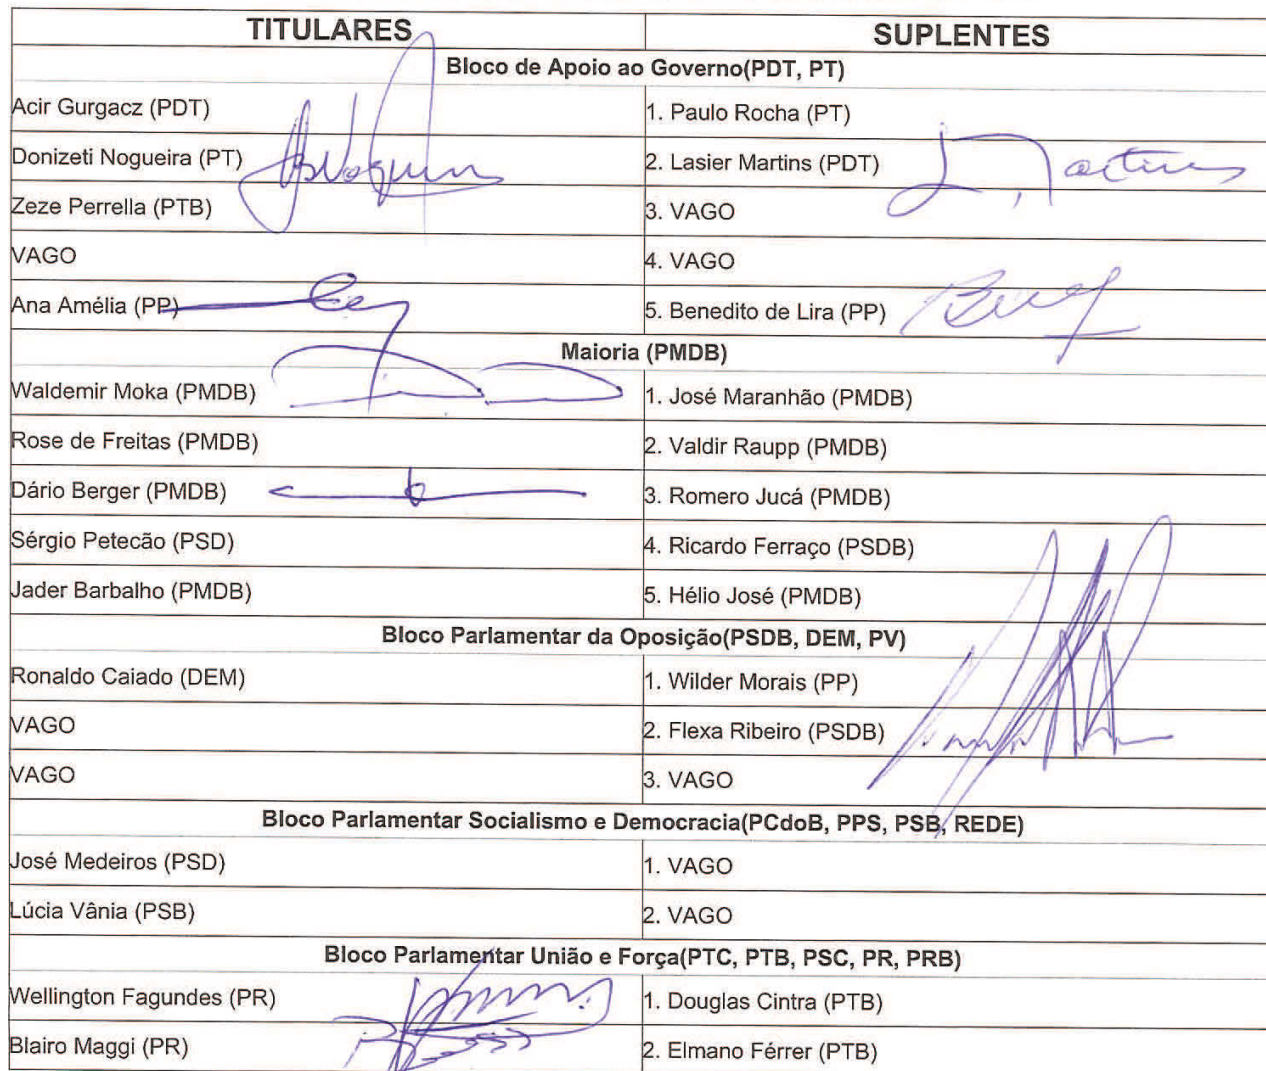 TITULARES SUPLENTES
Bloco de Apoio ao Governo(PDT, PT)
Acir Gurgacz (PDT) 1. Paulo Rocha (PT)
Donizeti Nogueira (PT) 2. Lasier Martins (PDT)
Zeze Perrella (PTB) 3. VAGO
VAGO 4. VAGO
Ana Amélia (PP) 5. Benedito de Lira (PP)
Maioria (PMDB)
Waldemir Moka (PMDB) 1. José Maranhão (PMDB)
Rose de Freitas (PMDB) 2. Valdir Raupp (PMDB)
Dário Berger (PMDB) 3. Romero Jucá (PMDB)
Sérgio Petecão (PSD) 4. Ricardo Ferraço (PSDB)
Jader Barbalho (PMDB) 5. Hélio José (PMDB)
Bloco Parlamentar da Oposição(PSDB, DEM, PV)
Ronaldo Caiado (DEM) 1. Wilder Morais (PP)
VAGO 2. Flexa Ribeiro (PSDB)
VAGO 3. VAGO
Bloco Parlamentar Socialismo e Democracia(PCdoB, PPS, PSB, REDE)
José Medeiros (PSD) 1. VAGO
Lúcia Vânia (PSB) 2. VAGO
Bloco Parlamentar União e Força(PTC, PTB, PSC, PR, PRB)
Wellington Fagundes (PR) 1. Douglas Cintra (PTB)
Blairo Maggi (PR) 2. Elmano Férrer (PTB)